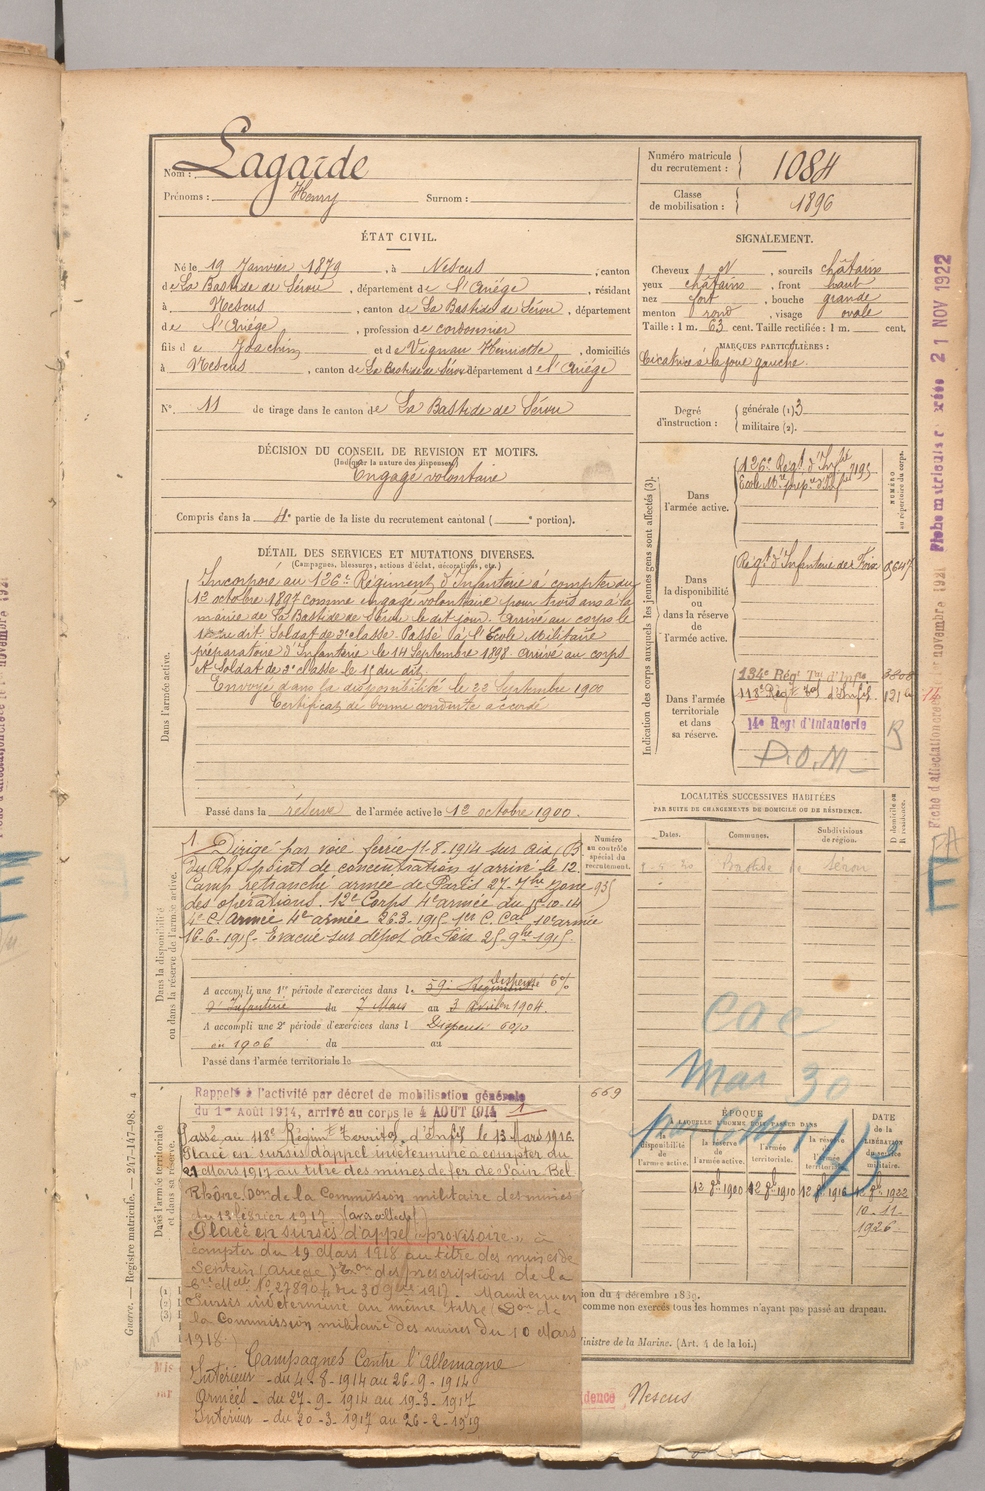 Nom : Lagarde
Prénoms : Henry Surnom :
Numéro matricule du recrutement : 1084
Classe de mobilisation : 1896
ÉTAT CIVIL.
Né le 19 Janvier 1879, à Nescus, canton
de La Bastide de Sérou, département de l'Ariège, résidant
à Nescus, canton de La Bastide de Sérou, département
de l'Ariège, profession de cordonnier
fils de Joachim et de Vignau Henriette, domiciliés
à Nescus, canton de La Bastide de Sérou département de l'Ariège
N° 11 de tirage dans le canton de La Bastide de Sérou
SIGNALEMENT.
Cheveux et, sourcils châtains
yeux châtains, front haut
nez fort, bouche grande
menton rond, visage ovale
Taille : 1 m. 63 cent. Taille rectifiée : 1 m. cent.
MARQUES PARTICULIÈRES :
Cicatrice à la joue gauche.
Degré d'instruction : générale (1) 3
militaire (2).
DÉCISION DU CONSEIL DE REVISION ET MOTIFS.
(Indiquer la nature des dispenses)
Engagé volontaire
Compris dans la 4e partie de la liste du recrutement cantonal ( e portion).
DÉTAIL DES SERVICES ET MUTATIONS DIVERSES.
(Campagnes, blessures, actions d'éclat, décorations, etc.)
Dans l'armée active.
Incorporé au 126e Régiment d'Infanterie à compter du
12 octobre 1897 comme engagé volontaire pour trois ans à la
mairie de La Bastide de Sérou le dit jour. Arrivé au corps le
dit. Soldat de 2e classe. Passé à l'Ecole Militaire
préparatoire d'Infanterie le 14 Septembre 1898 Arrivé au corps
et Soldat de 2e classe le 15 du dit.
Envoyé dans la disponibilité le 22 Septembre 1900
Certificat de bonne conduite accordé
Passé dans la réserve de l'armée active le 12 octobre 1900.
Indication des corps auxquels les jeunes gens sont affectés (3).
NUMÉRO au répertoire du corps.
Dans l'armée active.
126e Régt d'Infie 7195
Ecole Mre prépre d'Infie
Dans la disponibilité ou dans la réserve de l'armée active.
Régt d'Infanterie de Foix
Dans l'armée territoriale et dans sa réserve.
134e Régt Tal d'Infie 3808
113e Régt Tal d'Infie
14e Regt d'Infanterie
D.O.M
LOCALITÉS SUCCESSIVES HABITÉES
PAR SUITE DE CHANGEMENTS DE DOMICILE OU DE RÉSIDENCE.
Dates. Communes. Subdivisions de région. D domicile ou R résidence.
1-5-20 Bastide Sérou
Dans la disponibilité ou dans la réserve de l'armée active.
Numéro au contrôle spécial du recrutement.
Dirigé par voie ferrée 11-8-1914 sur Aix (B
du Rh) point de concentration y arrivé le 12.
Camp retranché armée de Paris 27. 7bre zone
des opérations. 12e Corps 4e armée du 15-10-14
4e C. Armée 4e armée 26-3-1915 1er C. Cal 10e armée
16-6-1915- Evacué sur dépôt de Foix 25-9bre 1915.
A accompli une 1re période d'exercices dans l 59e Régiment Dispensé 6%
d'Infanterie du 7 Mars au 3 Avril 1904.
A accompli une 2e période d'exercices dans l Dispensé 6%
en 1906 du au
Passé dans l'armée territoriale le
Dans l'armée territoriale et dans sa réserve.
Rappelé à l'activité par décret de mobilisation générale
du 1er Août 1914, arrivé au corps le 4 AOUT 1914
669
Passé au 113e Régimt Territal d'Infie le 13 Mars 1916
Placé en sursis d'appel indéterminé à compter du
21 Mars 1917 au titre des mines de fer de Sain Bel
Rhône Don de la Commission militaire des mines
du 13 Février 1917.
Placé en sursis d'appel "provisoire" à
compter du 19 Mars 1918 au titre des mines de
Sentein (Ariège) Exon des prescriptions de la
Cre Mlle No 27890 du 30 9bre 1917 - Maintenu en
Sursis indéterminé au même titre (Don de
la Commission militaire des mines du 10 Mars
1918.)
Campagnes Contre l'Allemagne
Intérieur - du 4-8-1914 au 26-9-1914
Armées - du 27-9-1914 au 19-3-1917
Intérieur - du 20-3-1917 au 26-2-1919
Cae
Mar 30
ÉPOQUE
À LAQUELLE L'HOMME DOIT PASSER DANS
la disponibilité de l'armée active. la réserve de l'armée active. l'armée territoriale. la réserve de l'armée territoriale. DATE de la LIBÉRATION du service militaire.
12 8bre 1900 12 8bre 1910 12 8bre 1916 8bre 1922
10-11-
1926
ion du 4 décembre 1889.
comme non exercés tous les hommes n'ayant pas passé au drapeau.
Ministre de la Marine. (Art. 4 de la loi.)
dence Nescus
Guerre. — Registre matricule. — 247-147-98.
21 NOV 1922
Fiche d'affectation novembre 1921